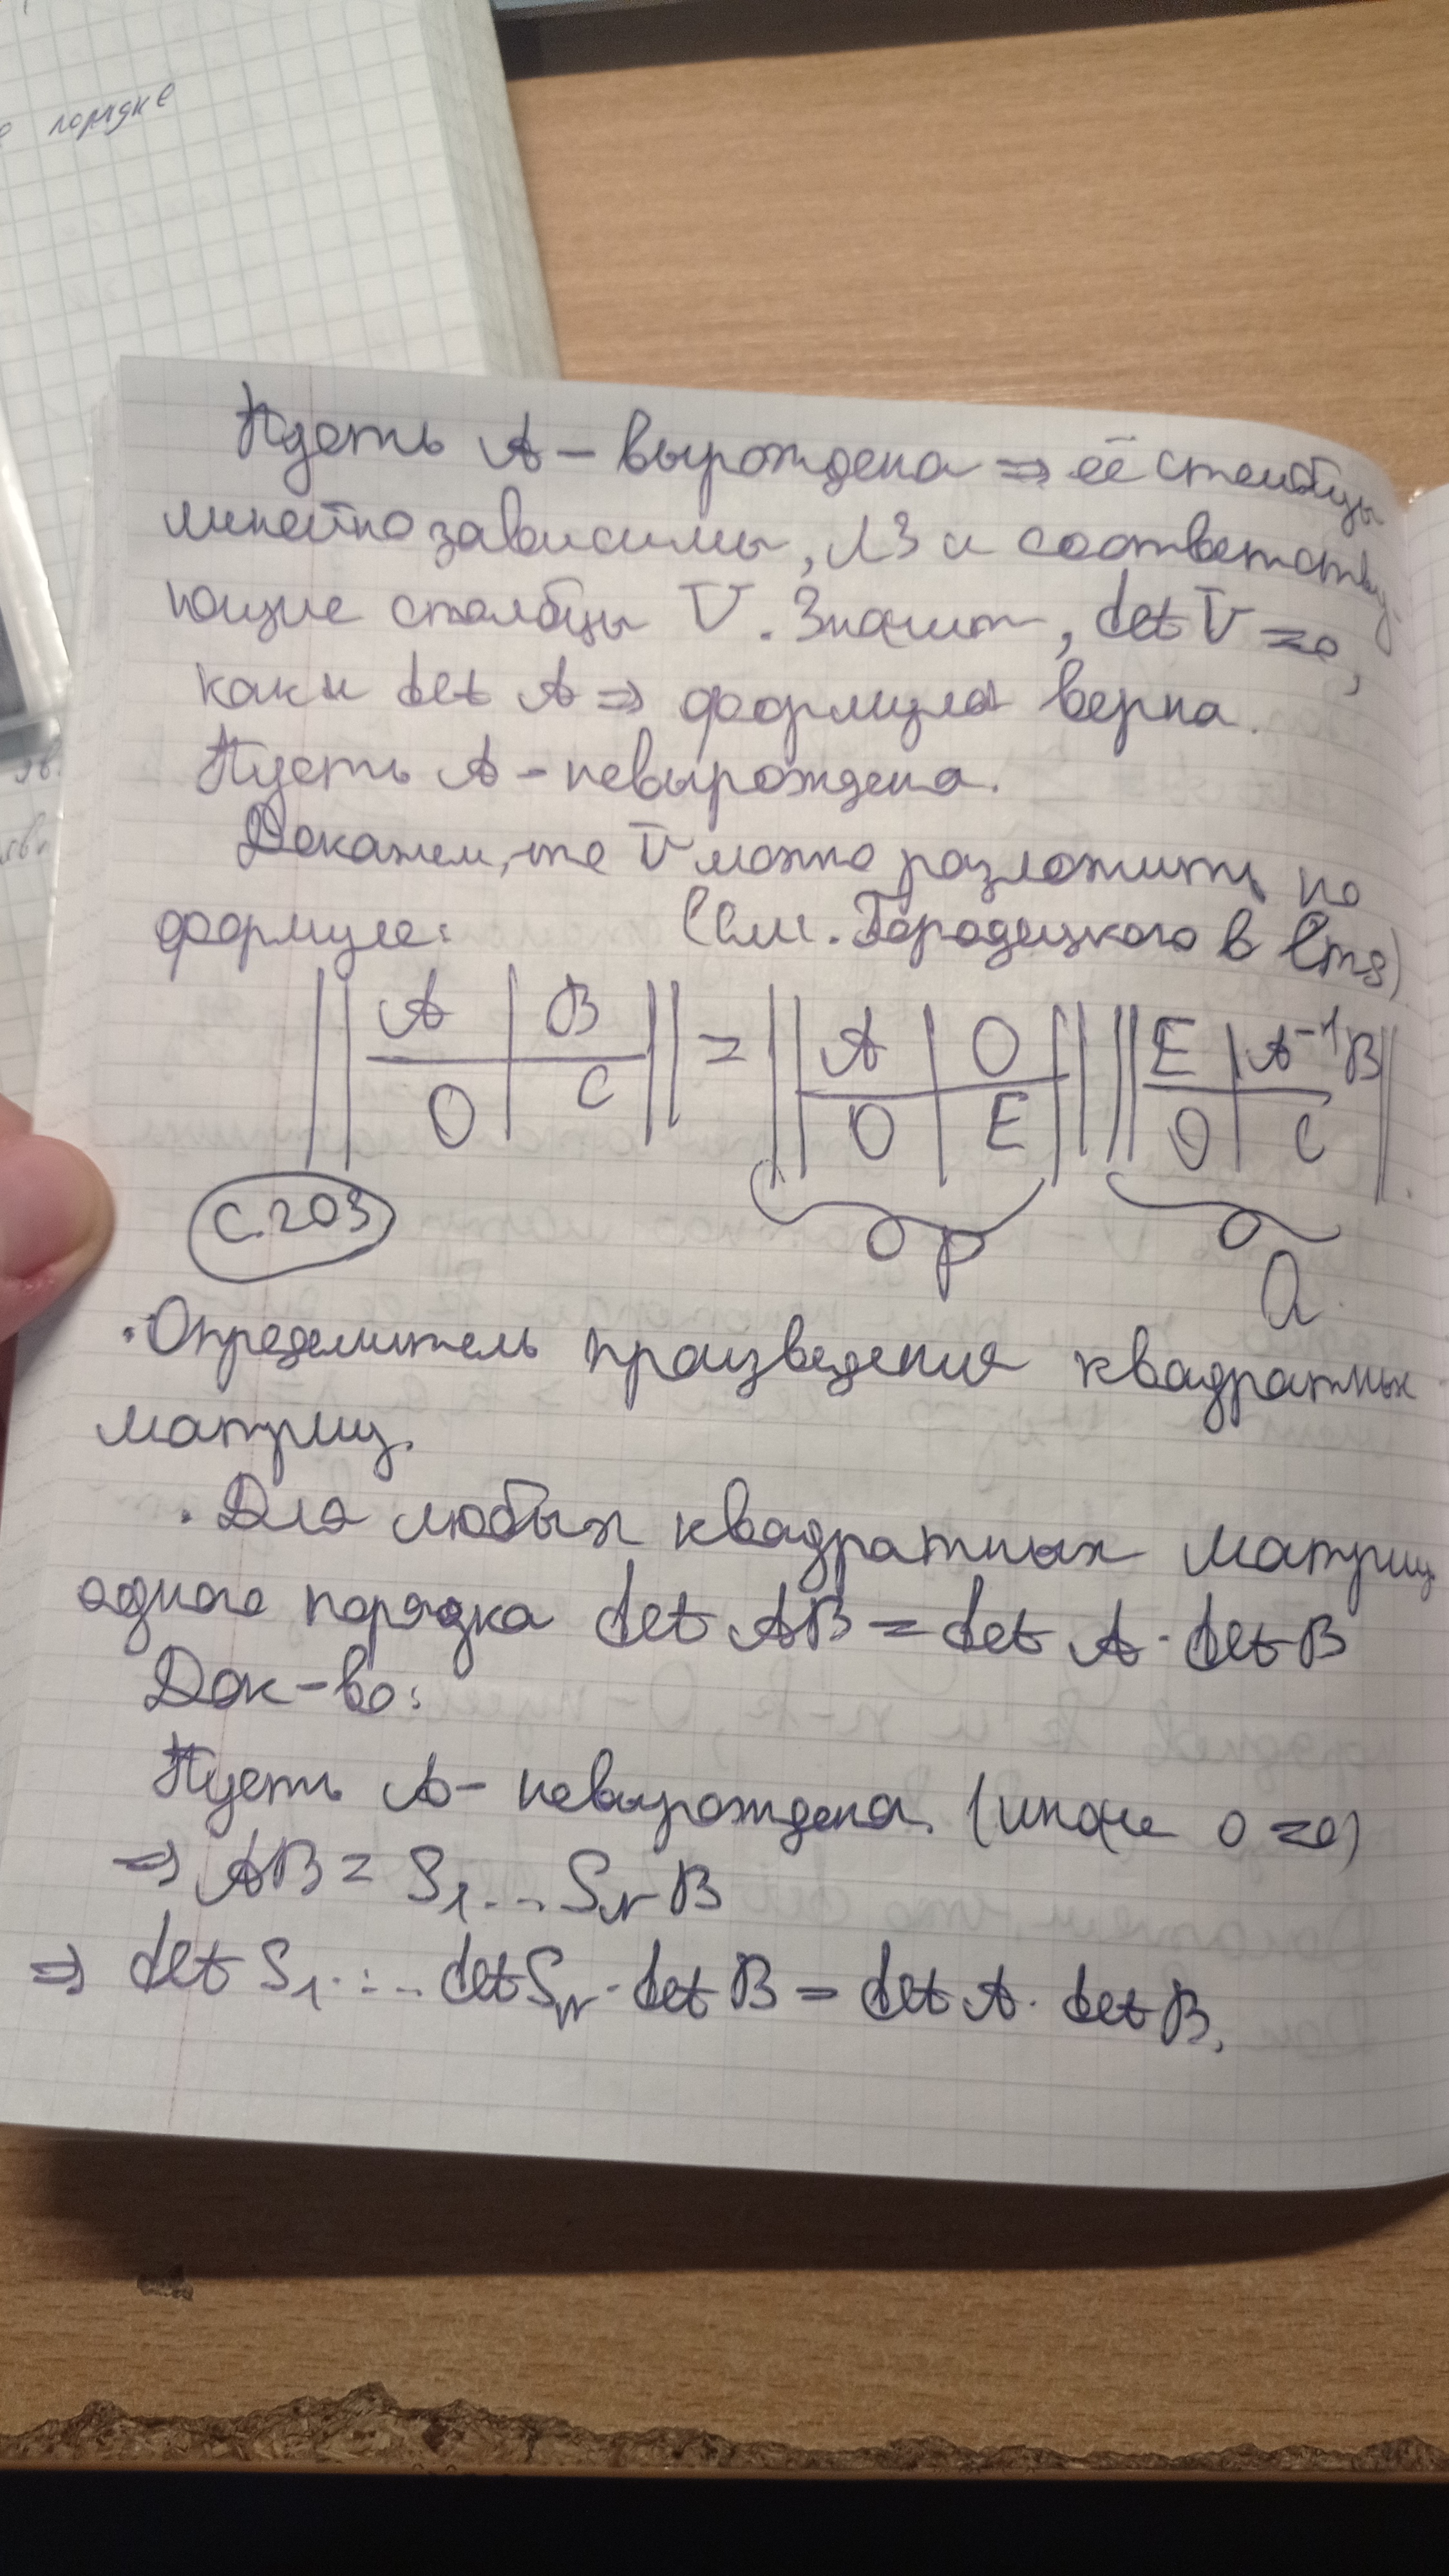 порядке
Пусть A – вырождена => её столбцы
линейно зависимы, ЛЗ и соответству-
ющие столбцы V. Значит, det V = 0,
как и det A => формула верна.
Пусть A – невырождена.
Докажем, что V можно разложить по
формуле: (см. Городецкого в lms)
|| A | B || = || A | O || || E | A⁻¹B ||
|| O | C || || O | E || || O | C ||
P Q
С. 203
· Определитель произведения квадратных
матриц.
· Для любых квадратных матриц
одного порядка det AB = det A · det B
Док-во:
Пусть A – невырождена. (иначе 0 = 0)
=> AB = S₁ ... S_N B
=> det S₁ · ... det S_N · det B = det A · det B.